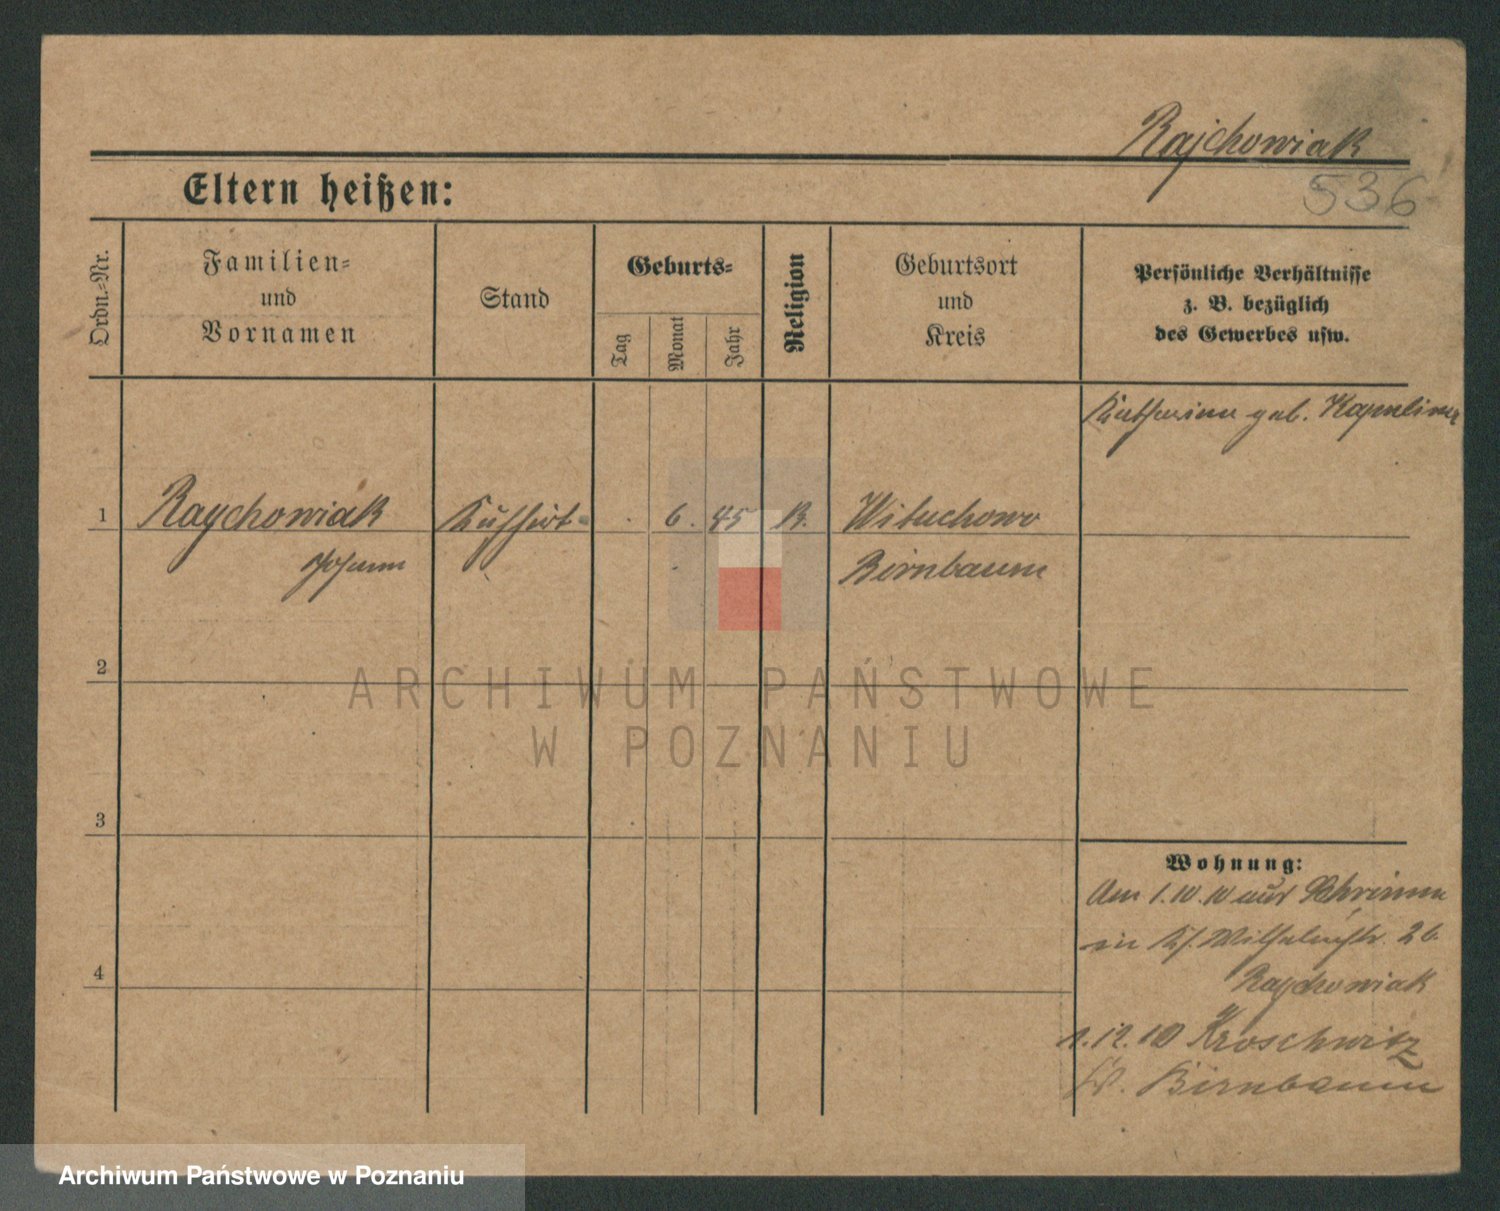 Rajchowiak
536
Eltern heißen:
Ordn.-Nr.
Familien-
und
Vornamen
Stand
Geburts-
Tag
Monat
Jahr
Religion
Geburtsort
und
Kreis
Persönliche Verhältnisse
z. B. bezüglich
des Gewerbes usw.
Katharina geb.
1
Raychowiak
6. 45 K.
Wituchowo
Johann
Birnbaum
2
3
4
Wohnung:
Am 1.10.10 aus Schrimm
in Wilhelmstr. 26
Raychowiak
1.12.10 Kroschwitz
Birnbaum
ARCHIWUM PAŃSTWOWE
W POZNANIU
Archiwum Państwowe w Poznaniu